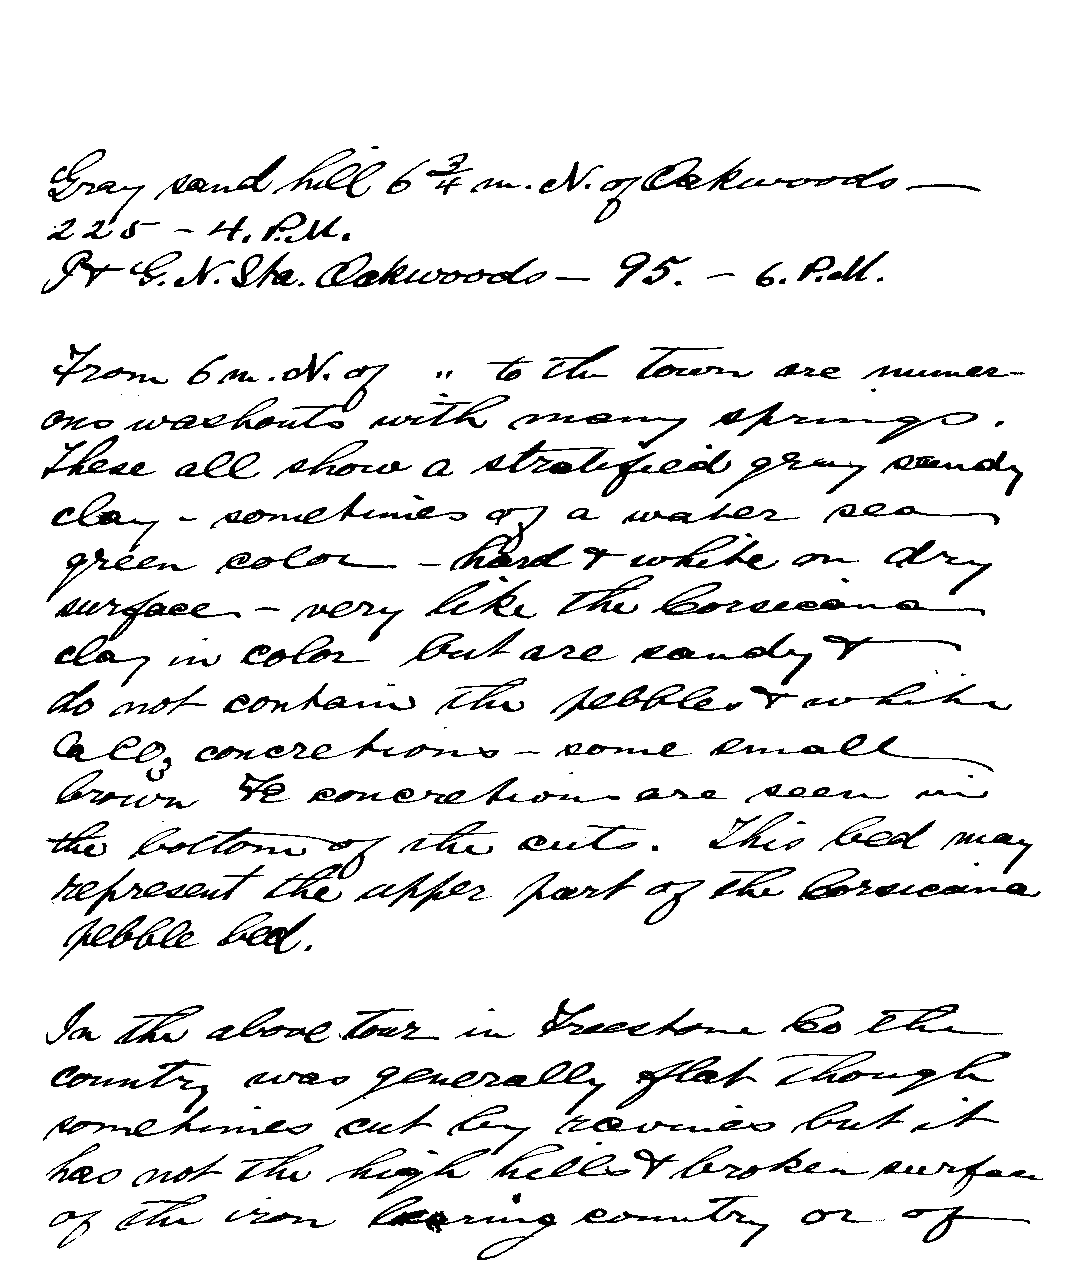 Gray sand hill 6 3/4 m. N. of Oakwoods —
225 - 4. P.M.
I + G. N. Sta. Oakwoods — 95. - 6. P.M.
From 6 m. N. of " to the town are numer-
ous washouts with many springs.
These all show a stratified gray sandy
clay - sometimes of a water sea
green color - hard + white on dry
surface - very like the Corsicana
clay in color but are sandy +
do not contain the pebbles + white
CaCO3 concretions - some small
brown Fe concretions are seen in
the bottom of the cuts. This bed may
represent the upper part of the Corsicana
pebble bed.
In the above tour in Freestone Co the
country was generally flat though
sometimes cut by ravines but it
has not the high hills + broken surface
of the iron bearing country or of